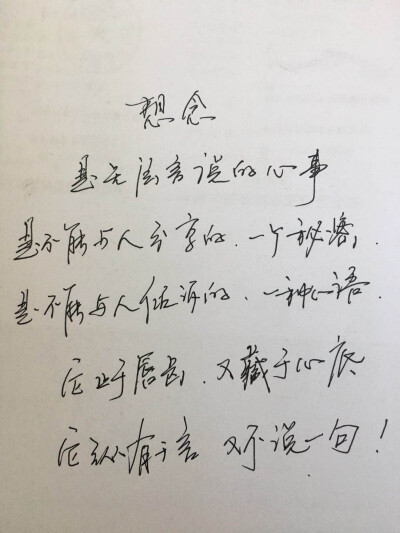 想念
是无法言说的心事
是不能与人分享的、一个秘密,
是不能与人倾诉的、一种心语.
它止于唇齿,又藏于心底
它纵有千言 又不说一句!